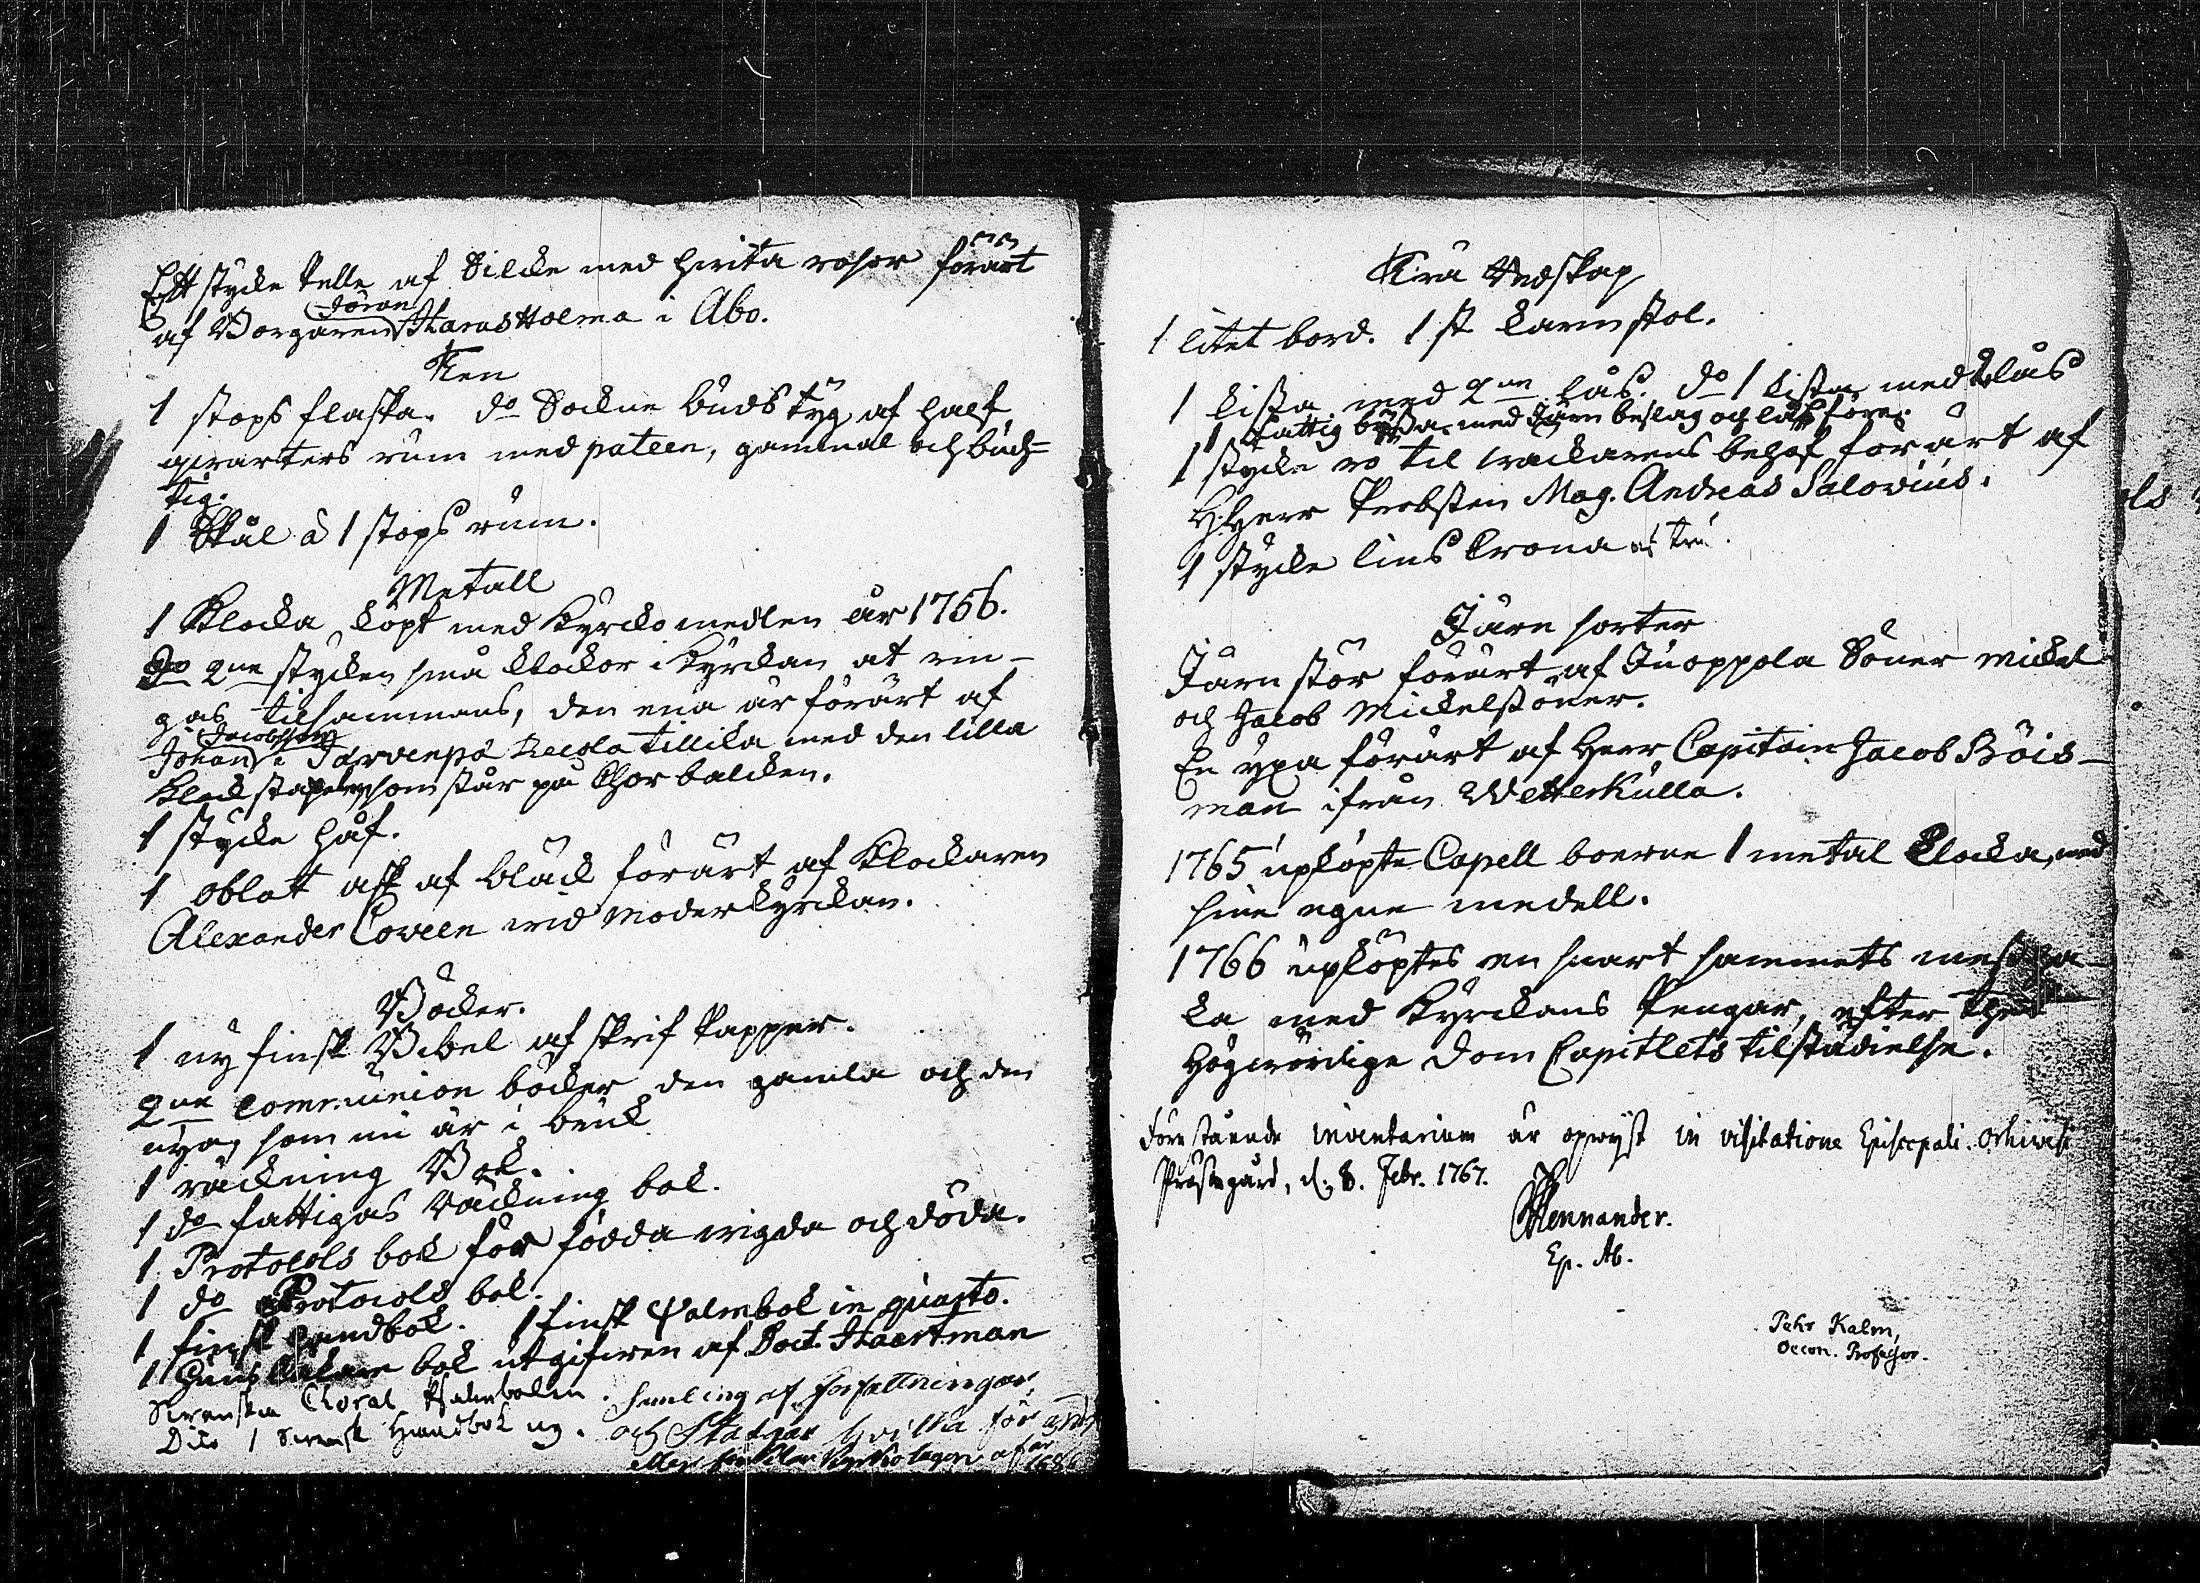 Ett stycke Pelle af Silcke med hvita rosor förärt
af Borgaren Jöran Harus Holma i Åbo.
Ten
1 stops flaska. do Sockne buds tyg af half
qwarters rum med pateen, gammal och buch-
tig.
1 Skål à 1 stops rum.
Metall
1 Klocka köpt med Kyrcko medlen år 1756.
do 2ne stycken små klockor i Kyrckan at rin-
gas tilsammans, den ena är förärt af
Johan Jacobsson i Järvenpä Kecola tillika med den lilla
Klockstapeln som står på Chor balcken.
1 stycke håf.
1 oblat ask af bläck förärt af Klockaren
Alexander Coveen wid Moderkyrckan.
Böcker.
1 ny finsk Bibel af skrif Papper.
2ne Communion böcker den gamla och den
nya, som nu är i bruk
1 räckning Bok.
1 do fattigas räckning bok.
1 Protocols bok för födda wigda och döda.
1 do Protocols bok.
1 finsk Handbok. 1 finsk Psalmbok in quarto.
1 bok utgifwen af Doct. Haartman
Svenska Choral Psalmboken. Samling af författningar,
Dito 1 Svensk Handbok ny. och Stadgar hvilka
eller Kyrkolagen af år 1686
Trä Redskap
1 litet bord. 1 st karmstol.
1 kista med 2ne lås. do 1 kista med lås
1 fattig bössa med Järn beslag och lås före.
1 stycke ro til wackarens behof förärt af
H. Herr Probsten Mag. Andreas Salovius.
1 stycke lius Crona af trä.
Järn sorter
Järn stör förärt af Juoppola Söner Mickel
och Jacob Mickelssöner.
En yxa förärt af Herr Capitain Jacob Böis-
man ifrån Wetterkulla.
1765 upköpte Capell boerne 1 metal klocka, med
sine egne medell.
1766 upköptes en swart sammets mesha-
ka med Kyrckans Pengar, efter thes
Högwördige Dom Capitlets tilstädielse.
Förestående inventarium är opwyst in visitatione Episcopali. Orhiwesi
Prästegård, d. 8. Febr. 1767.
Mennander.
Ep. Ab.
Pehr Kalm,
Oecon. Professor.